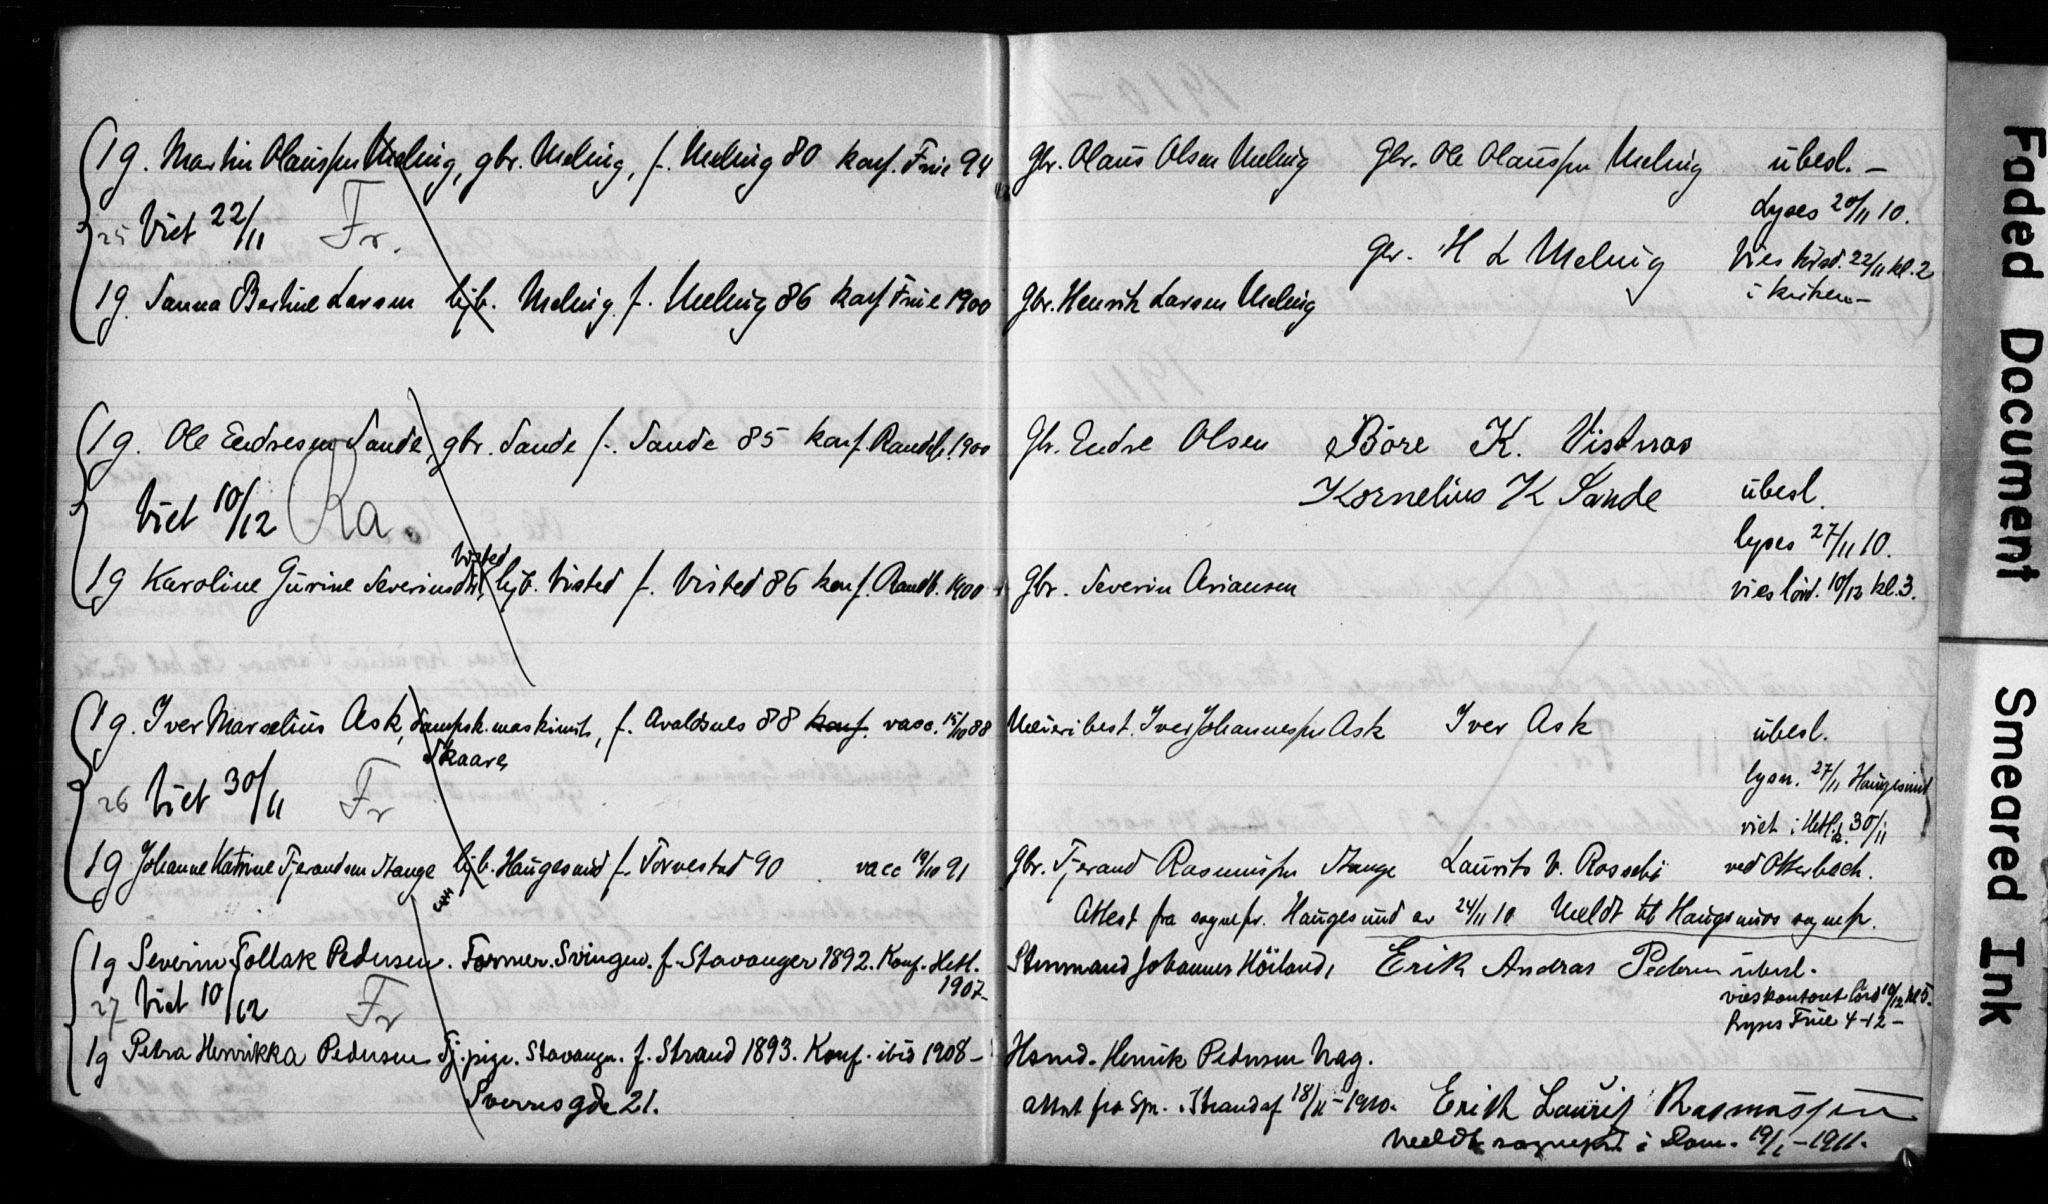 1 g. Martin Olaussen Meling, gbr. Meling, f. Meling 80 konf. Frue 94 Gbr. Olaus Olsen Meling Gbr. Ole Olaussen Meling ubesl. –
Lyses 20/11 10.
25 Viet 22/11 Fr.
Gbr. H L Meling Vies 22/11 kl. 2
i kirken –
1 g. Sanna Bertine Larsen hjb. Meling f. Meling 86 konf Frue 1900 Gbr. Henrik Larsen Meling
1 g. Ole Endresen Sande, gbr. Sande f. Sande 85 konf. Randb. 1900 Gbr. Endre Olsen Böre K. Vistnæs
Kornelius K Sande ubesl.
Viet 10/12 Ra.
lyses 27/11 10.
Visted
1 g Karoline Gurine Severinsdtr. hjb. Visted f. Visted 86 konf. Randb. 1900 Gbr. Severin Ariansen vies lörd. 10/12 kl. 3.
1 g. Iver Marselius Ask, dampsk. maskinist, f. Avaldsnes 88 konf. vacc. 15/10 88 Meieribest. Iver Johannessen Ask Iver Ask ubesl.
Skaare
lysn. 27/11 Haugesund
26 Viet 30/11 Fr
viet i Hetl. 30/11
1 g Johanne Katrine Tjerandsen Stange hjb. Haugesund f. Torvestad 90 vacc 19/10 91 Gbr. Tjerand Rasmussen Stange Laurits V. Rossebö ved Otterbech.
Attest fra sognepr. Haugesund av 24/11 10 Meldt til Haugesunds sognepr.
1 g Severin Tollak Pedersen. Former. Svingev. f. Stavanger 1892. Konf. Hetl. 1907– Stenmand Johannes Höiland, Erik Andras Pedersen ubesl.
27 Viet 10/12 Fr
vies kontoret lörd 10/12 kl 5.
lyses Frue 4-12 –
1 g Petra Henrikka Pedersen Tj. pige. Stavanger. f. Strand 1893. Konf. ibid 1908 – Hsmd. Henrik Pedersen Vag.
Sverresgde 21.
attest fra Spr. i Strand af 18/11 – 1910. Erik Laurits Rasmussen
Meldt sognepr. i Dom. 19/1 – 1911.
Faded Document
Smeared Ink